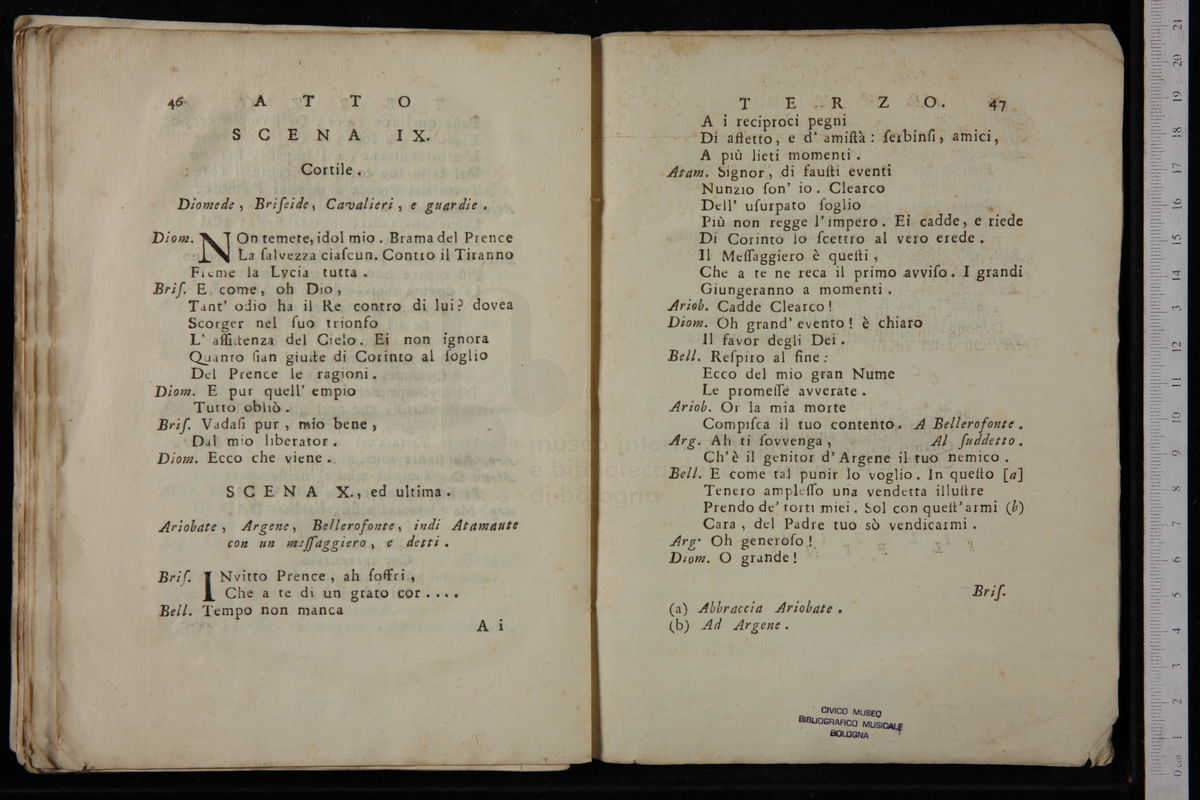 46 A T T O
S C E N A IX.
Cortile.
Diomede, Briſeide, Cavalieri, e guardie.
Diom. NOn temete, idol mio. Brama del Prence
La ſalvezza ciaſcun. Contro il Tiranno
Freme la Lycia tutta.
Briſ. E come, oh Dio,
Tant' odio ha il Re contro di lui? dovea
Scorger nel ſuo trionfo
L' aſſiſtenza del Cielo. Ei non ignora
Quanto ſian giuſte di Corinto al ſoglio
Del Prence le ragioni.
Diom. E pur quell' empio
Tutto obliò.
Briſ. Vadaſi pur, mio bene,
Dal mio liberator.
Diom. Ecco che viene.
S C E N A X., ed ultima.
Ariobate, Argene, Bellerofonte, indi Atamante
con un meſſaggiero, e detti.
Briſ. INvitto Prence, ah ſoffri,
Che a te di un grato cor....
Bell. Tempo non manca
A i
T E R Z O. 47
A i reciproci pegni
Di affetto, e d' amiſtà: ſerbinſi, amici,
A più lieti momenti.
Atam. Signor, di fauſti eventi
Nunzio ſon' io. Clearco
Dell' uſurpato ſoglio
Più non regge l'impero. Ei cadde, e riede
Di Corinto lo ſcettro al vero erede.
Il Meſſaggiero è queſti,
Che a te ne reca il primo avviſo. I grandi
Giungeranno a momenti.
Ariob. Cadde Clearco!
Diom. Oh grand' evento! è chiaro
Il favor degli Dei.
Bell. Reſpiro al fine:
Ecco del mio gran Nume
Le promeſſe avverate.
Ariob. Or la mia morte
Compiſca il tuo contento. A Bellerofonte.
Arg. Ah ti ſovvenga, Al ſuddetto.
Ch'è il genitor d'Argene il tuo nemico.
Bell. E come tal punir lo voglio. In queſto [a]
Tenero ampleſſo una vendetta illuſtre
Prendo de' torti miei. Sol con queſt'armi (b)
Cara, del Padre tuo sò vendicarmi.
Arg. Oh generoſo!
Diom. O grande!
Briſ.
(a) Abbraccia Ariobate.
(b) Ad Argene.
CIVICO MUSEO
BIBLIOGRAFICO MUSICALE
BOLOGNA